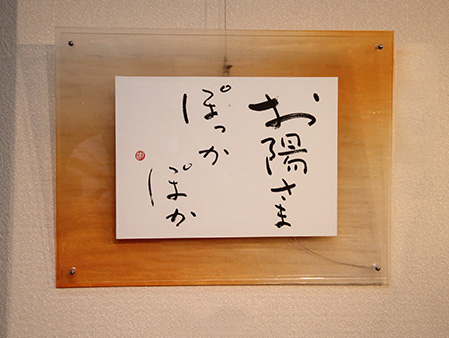 お陽さま
ぽっか
ぽか